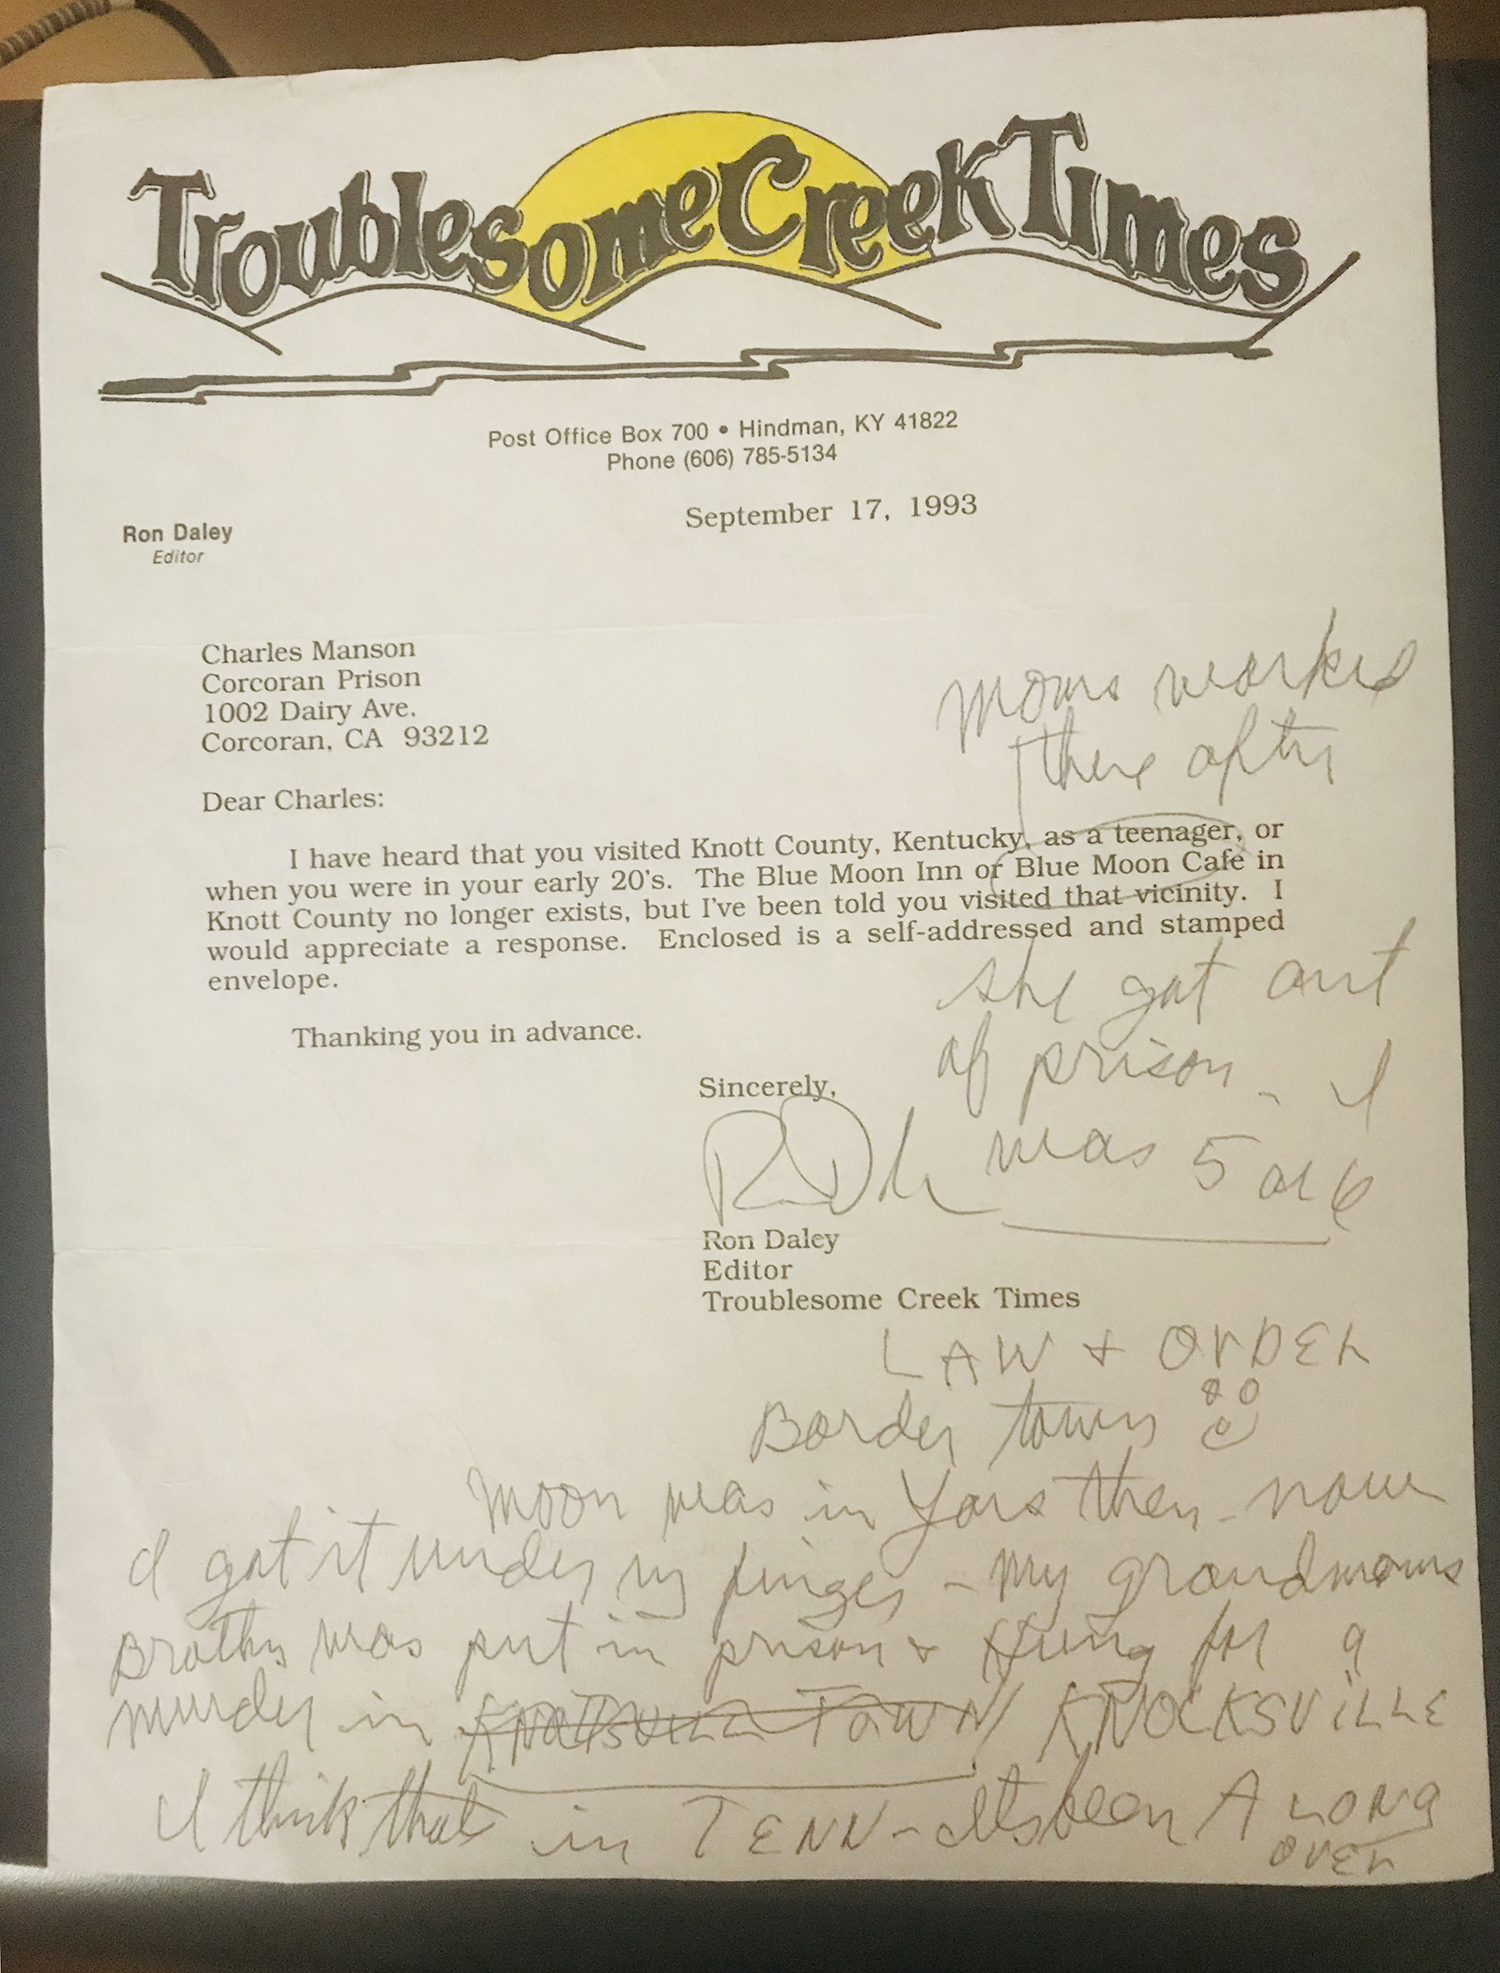 Troublesome Creek Times
Post Office Box 700 • Hindman, KY 41822
Phone (606) 785-5134
September 17, 1993
Ron Daley
Editor
Charles Manson
Corcoran Prison
1002 Dairy Ave.
Corcoran, CA 93212
Moms worked
there after
Dear Charles:
I have heard that you visited Knott County, Kentucky, as a teenager, or
when you were in your early 20's. The Blue Moon Inn or Blue Moon Cafe in
Knott County no longer exists, but I've been told you visited that vicinity. I
would appreciate a response. Enclosed is a self-addressed and stamped
envelope.
she got out
of prison - I
was 5 or 6
Thanking you in advance.
Sincerely,
Ron Daley
Editor
Troublesome Creek Times
LAW + OrDEr
Border town
Moon was in Yours then - now
I got it under my finger - My grandmoms
Brother was put in prison + Hung for a
murder in KNOCKSViLLE
I think that in TENN - Its been A LONG
OVEr